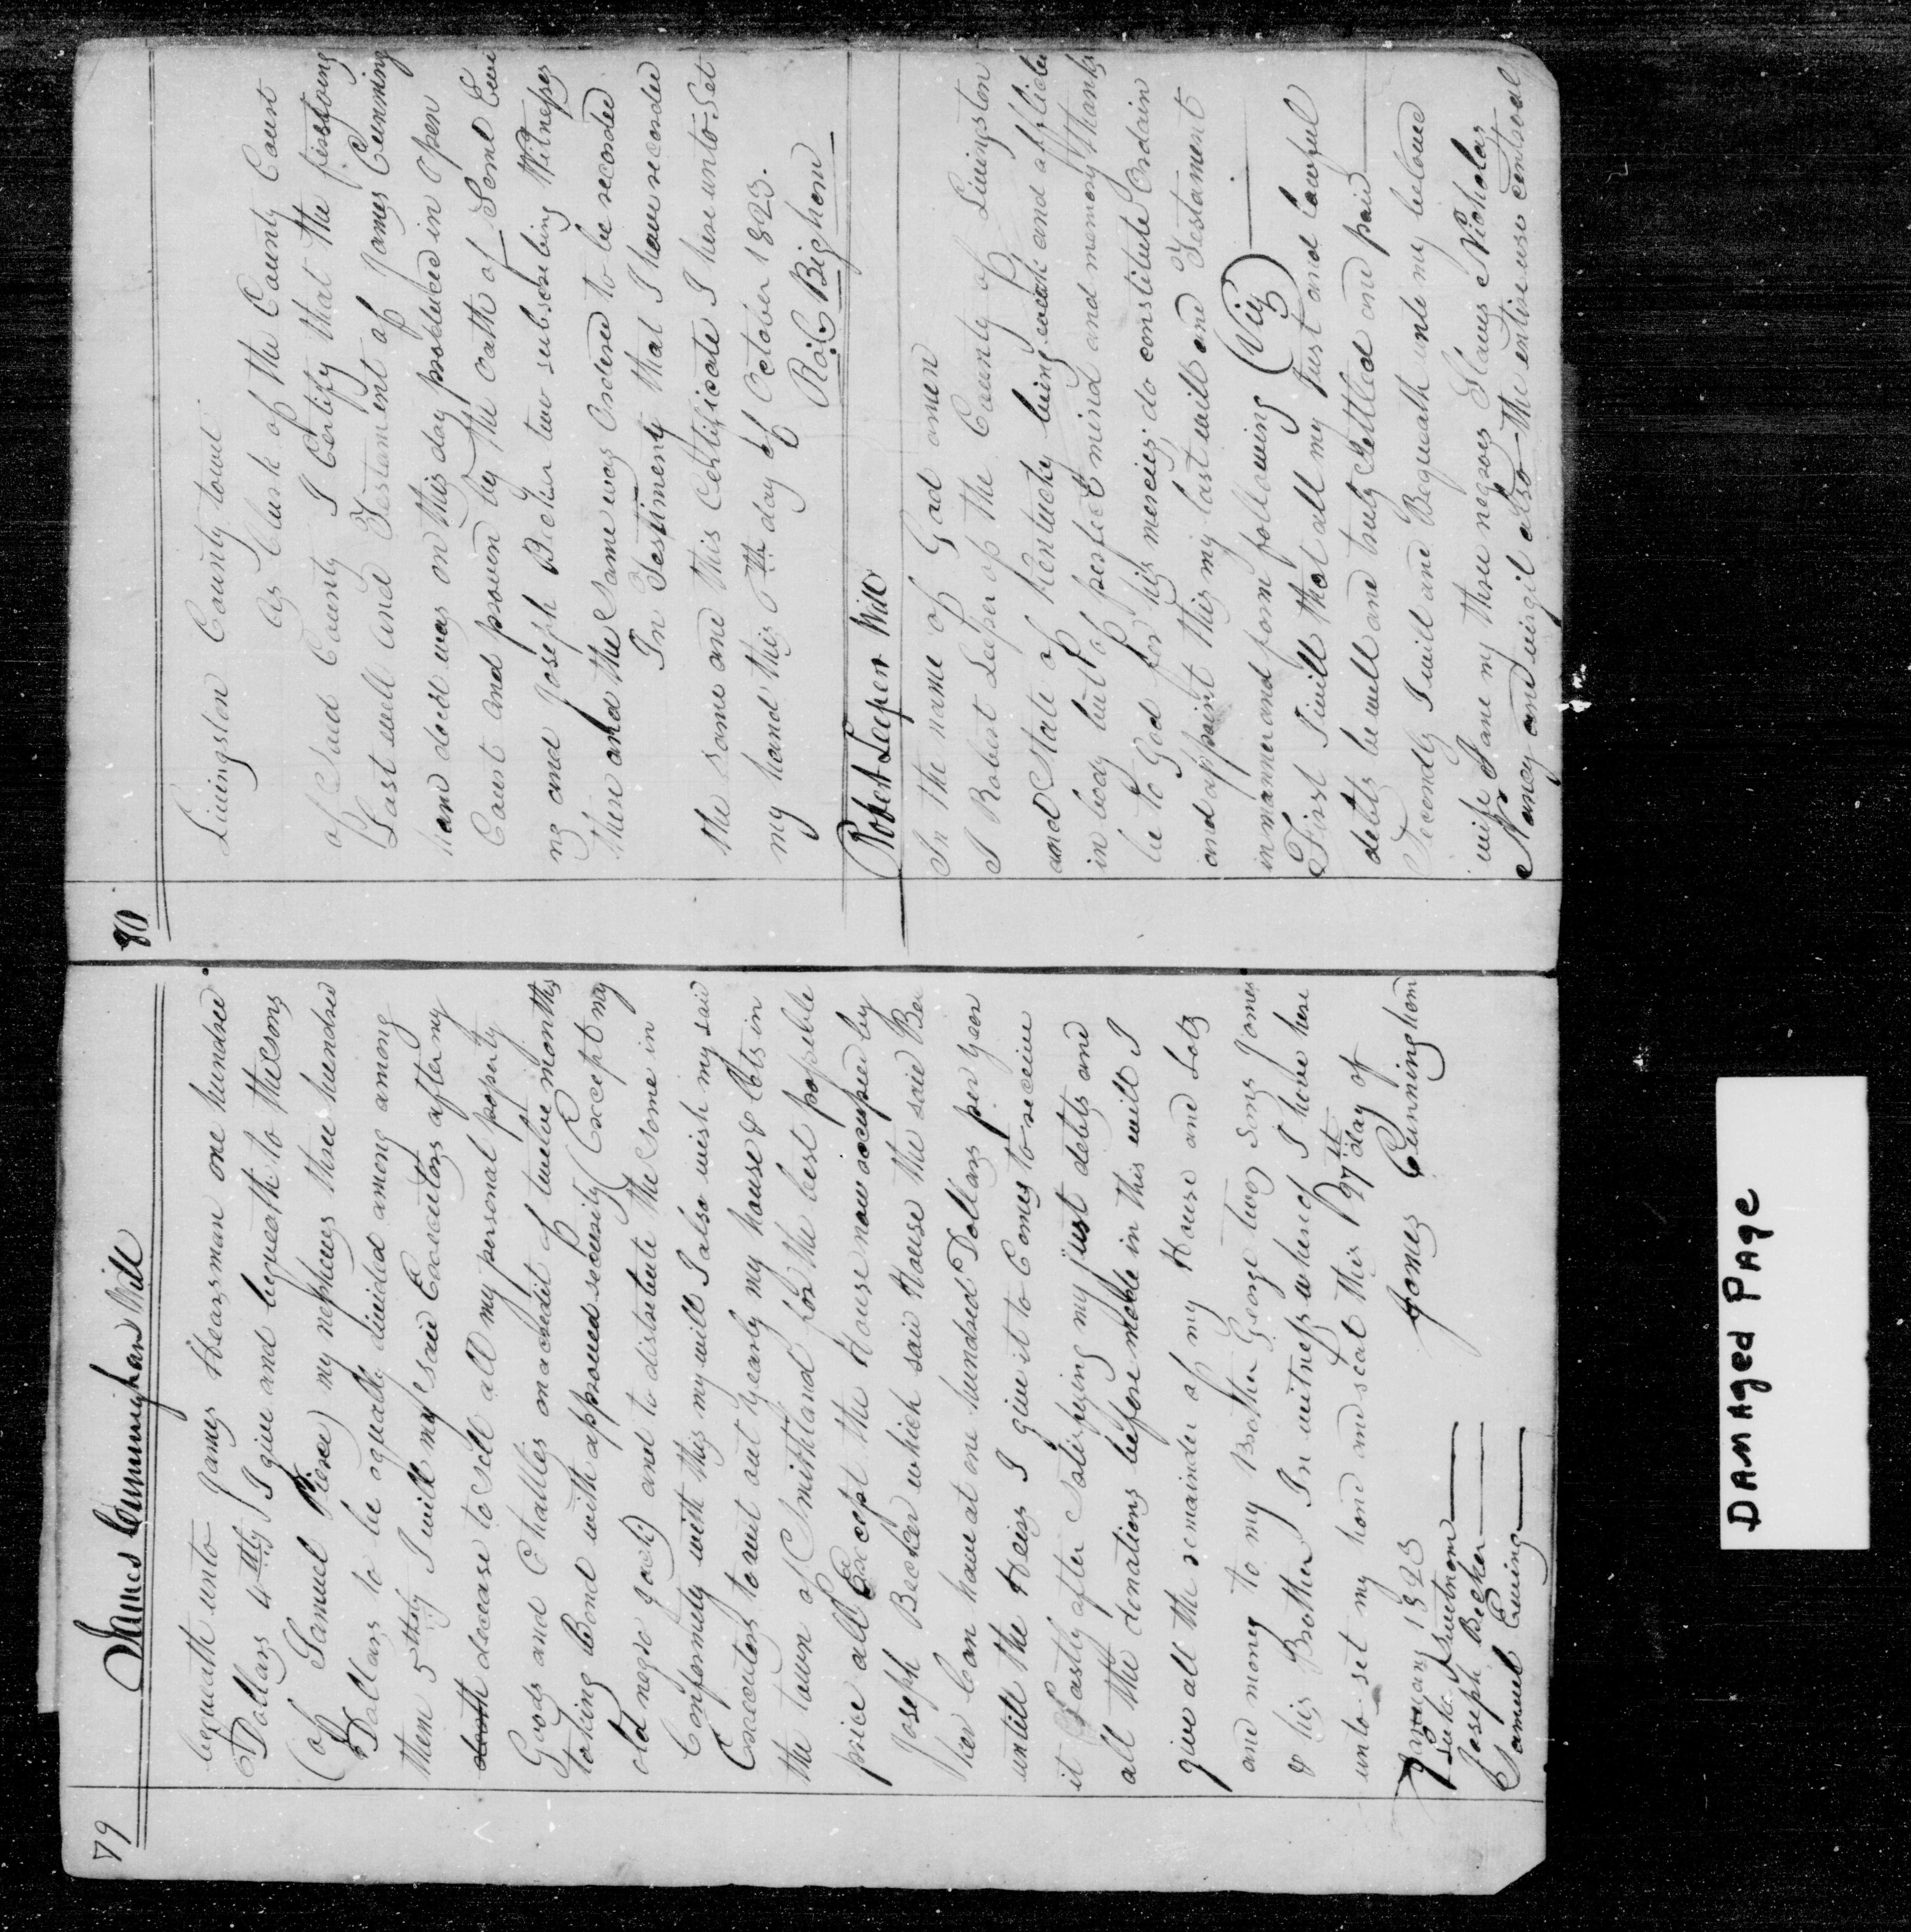 79
James Cunningham Will
bequeath unto James Hearsman one hundred
Dollars 4thly I give and bequeath to the sons
(of Samuel Pierce) my nephews three hundred
Dollars to be equally divided among among
them 5thly I will my said Executors after my
death decease to sell all my personal property
Goods and Chattles on a credit of twelve months
taking Bond with approved security (Except my
old negro Jack) and to distribute the same in
Conformity with this my will I also wish my said
Executors to rent out yearly my house & lots in
the town of Smithland for the best possible
price all Except the House now occupied by
Joseph Becker which said House the said Bec
ker Can have at one hundred Dollars per year
untill the Heirs I give it to Comes to receive
it Lastly after Satisfying my just debts and
all the donations before made in this will I
give all the remainder of my House and Lots
and money to my Brother George two sons James
& his Brother In witness whereof I have here
unto set my hand and seal this 27th day of
January 1823
James Cunningham
Joseph Becker
Samuel Ewing
80
Livingston County towit
As Clerk of the County Court
of Said County I Certify that the foregoing
Last will and Testament of James Cunning
ham decd was on this day produced in open
Court and proven by the oath of Saml Ewi
ng and Joseph Becker two subscribing Witnesses
there and the Same was Ordered to be recorded
In Testimony that I have recorded
the same and this Certificate I hereunto Set
my hand this 6th day of October 1823.
Ro. C Bigham
Robert Leeper Will
In the name of God amen
I Robert Leeper of the County of Livingston
and State of Kentucky being weak and afflicted
in body but of perfect mind and memory thanks
be to God for his mercies, do constitute Ordain
and appoint this my last will and Testament
in manner and form following (Viz)
First I will that all my Just and lawful
debts be well and truly Settled and paid
Secondly I will and Bequeath unto my beloved
wife Jane my three negroes Slaves Nicholas
Nancy and virgil also the entire use control
DAMAGED PAGE